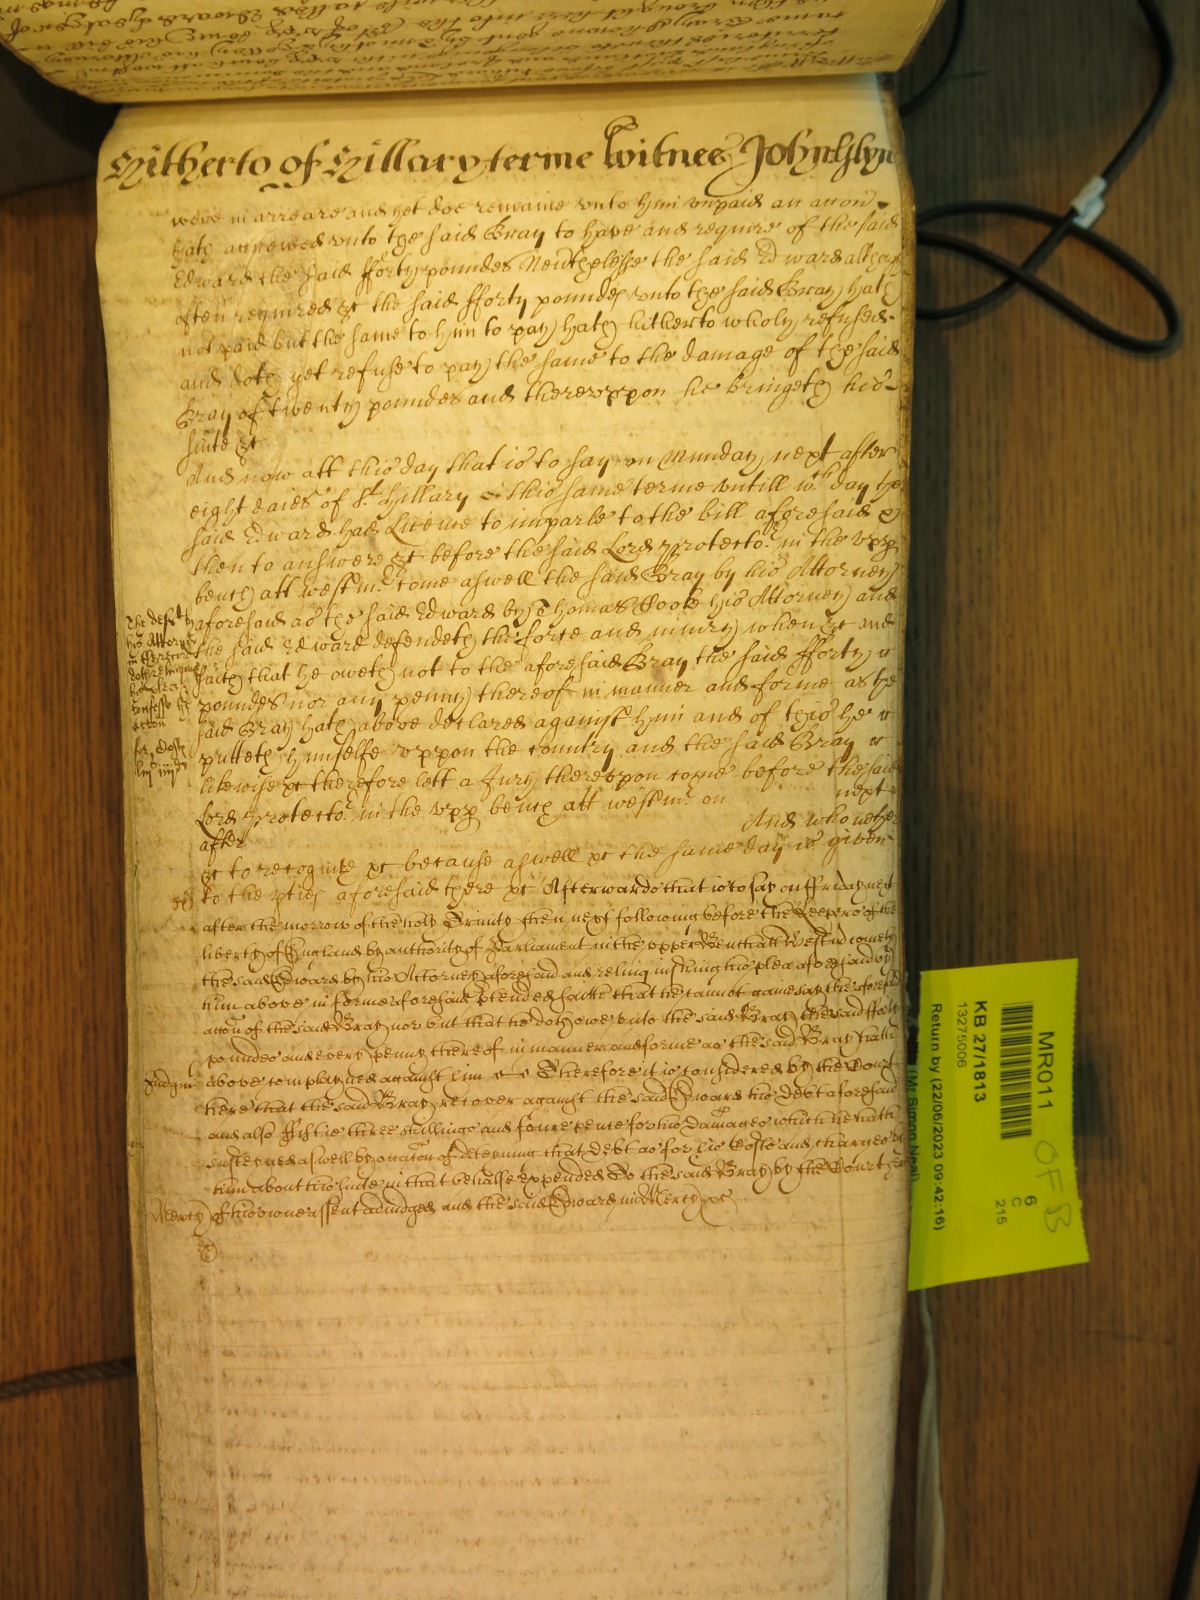 Hitherto of Hillary terme Witnes John Glyn
were in arreare and yet doe remaine unto him unpaid an accon
hath accrewed unto the said Bray to have and require of the said
Edward the said fforty poundes Nevthelesse the said Edward althoug
often required &c the said fforty poundes unto the said Bray hath
not paid but the same to him to pay hath hitherto wholy refused
and doth yet refuse to pay the same to the damage of the said
Bray of twenty poundes and thereuppon he bringeth his
suite &c
And now att this day that is to say on Munday next after
eight daies of St Hillary in this same terme untill wch day the
said Edward had Licence to imparle to the bill aforesaid &
then to answere &c before the said Lord Protector in the upp
bench att Westmr come aswell the said Bray by his Attorney
aforesaid as the said Edward by Thomas Cook his Attorney and
the said Edward defendeth the force and iniury when &c and
saith that he oweth not to the aforesaid Bray the said fforty
poundes nor any penny thereof in manner and forme as the
said Bray hath above declared against him and of this he
putteth himselfe uppon the country and the said Bray
likewise &c therefore lett a Jury thereupon come before the said
Lord Protector in the upp bench att Westmr on next
after And who nether
&c to recognize &c because aswell &c the same day is given
to the pties aforesaid there &c Afterwards that is to say on ffriday next
after the morrow of the holy Trinity then next following before the Keepers of the
liberty of England by authority of Parliament in the upper Bench att Westmr cometh
the said Edward by his Attorney aforesaid and relinquishing his plea aforesaid by
him above in forme aforesaid pleaded saith that he cannot gainesay the aforesaid
accon of the said Bray nor but that he doth owe unto the said Bray the said fforty
poundes and every penny thereof in manner and forme as the said Bray hath
above complayned against him Therefore it is considered by the Court
here that the said Bray recover against the said Edward his debt aforesaid
and also ffiftie three shillings and foure pence for his damages which he hath
susteyned aswell by occacon of deteyning that debt as for his Costs and charges by
him about his suite in that behalfe expended to the said Bray by the Court here
of his owne assent adiudged and the said Edward in Mercy &c
The deft by
his Attorney
his plea
confesse the
accon
for Costs
liijs iiijd
Judgmt
Mercy
MR011
KB 27/1813
13275006
Return by (22/06/2023 09:42:16)
(Mr Simon Neal)
6
C
215
OFB